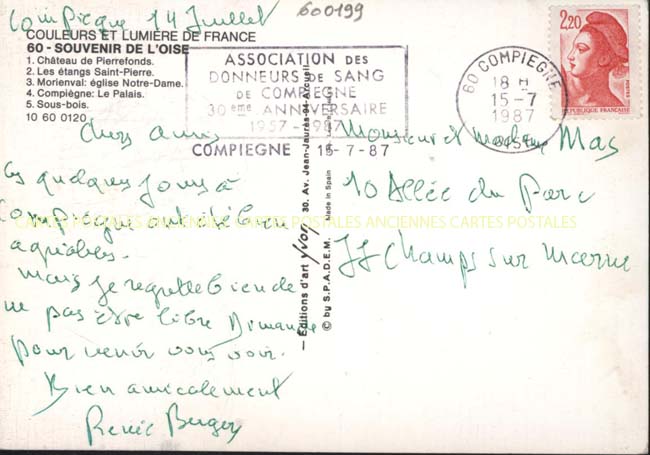 Compiegne 14 Juillet
600199
COULEURS ET LUMIÈRE DE FRANCE
60 - SOUVENIR DE L'OISE
1. Château de Pierrefonds.
2. Les étangs Saint-Pierre.
3. Morienval: église Notre-Dame.
4. Compiègne: Le Palais.
5. Sous-bois.
10 60 0120
ASSOCIATION DES
DONNEURS DE SANG
DE COMPIEGNE
30eme ANNIVERSAIRE
1957-1987
COMPIEGNE 15-7-87
60 COMPIEGNE
18 H
15-7
1987
OISE
2,20
REPUBLIQUE FRANÇAISE
Chers amis
Ces quelques jours à
Compiègne ont été bien
agréables.
mais je regrette bien de
ne pas être libre Dimanche
pour venir vous voir.
Bien amicalement
Renée Berger
— Editions d'art yvon, 30. Av. Jean-Jaurès-94-Arcueil
© by S.P.A.D.E.M. Made in Spain
Monsieur et Madame Mas
10 Allée du Parc
77 Champs sur Marne
CARTES POSTALES ANCIENNES CARTES POSTALES ANCIENNES CARTES POSTALES